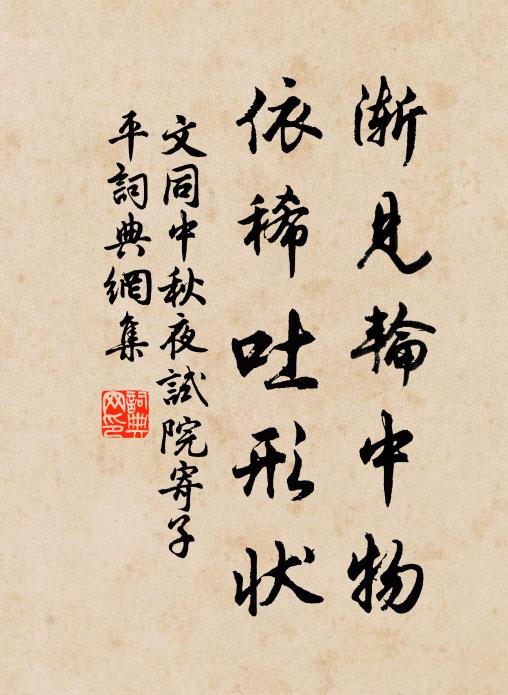 漸見輪中物
依稀吐形狀
文同中秋夜試院寄子
平詞典網集
詞典
网印